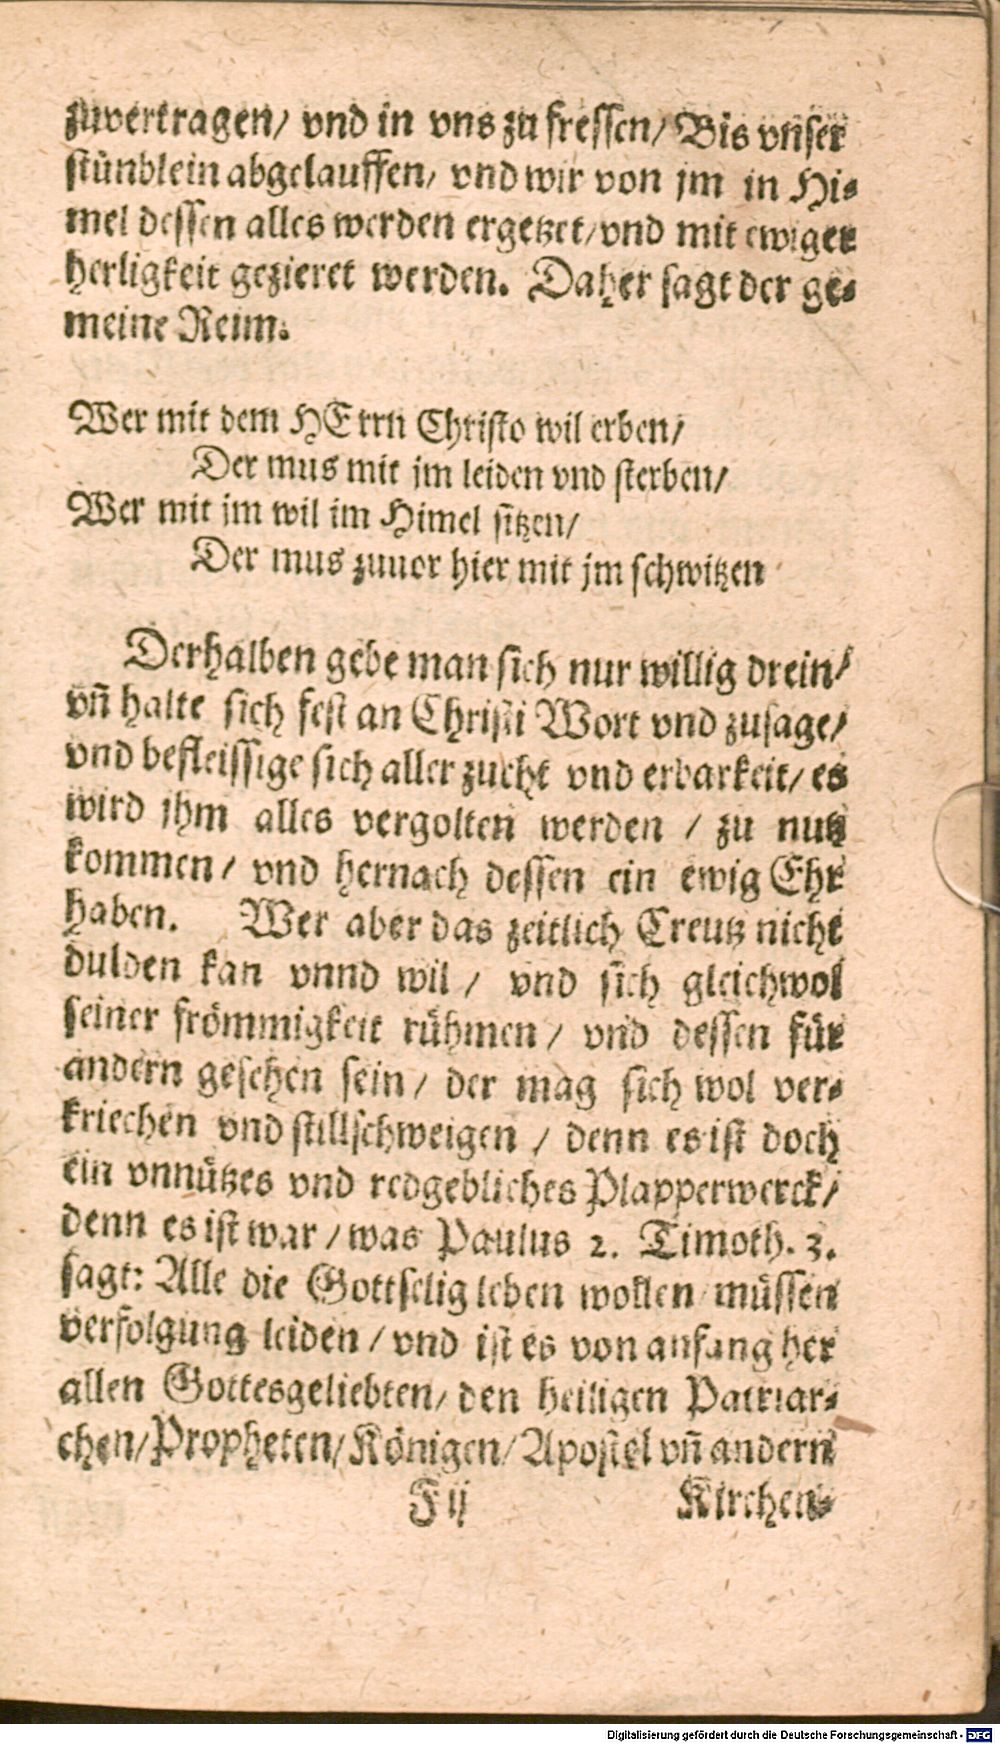 zuvertragen/ vnd in vns zu fressen/ Bis vnser
stünblein abgelauffen/ vnd wir von jm in Hi-
mel dessen alles werden ergetzet/ vnd mit ewiger
herligkeit gezieret werden. Daher sagt der ge-
meine Reim.
Wer mit dem HErrn Christo wil erben/
Der mus mit jm leiden vnd sterben/
Wer mit jm wil im Himel sitzen/
Der mus zuuor hier mit jm schwitzen
Derhalben gebe man sich nur willig drein/
vñ halte sich fest an Christi Wort vnd zusage/
vnd befleissige sich aller zucht vnd erbarkeit/ es
wird jhm alles vergolten werden / zu nutz
kommen/ vnd hernach dessen ein ewig Ehr
haben. Wer aber das zeitlich Creutz nicht
dulden kan vnnd wil / vnd sich gleichwol
seiner frömmigkeit rühmen/ vnd dessen für
andern gesehen sein/ der mag sich wol ver-
kriechen vnd stillschweigen / denn es ist doch
ein vnnützes vnd redgebliches Plapperwerck/
denn es ist war / was Paulus 2. Timoth. 3.
sagt: Alle die Gottselig leben wollen müssen
verfolgung leiden / vnd ist es von anfang her
allen Gottesgeliebten/ den heiligen Patriar-
chen/ Propheten/ Königen/ Apostel vñ andern
F ij Kirchen-
Digitalisierung gefördert durch die Deutsche Forschungsgemeinschaft - DFG